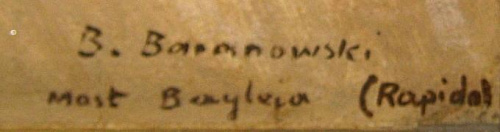 B. Baranowski
Most Bayleya (Rapido)